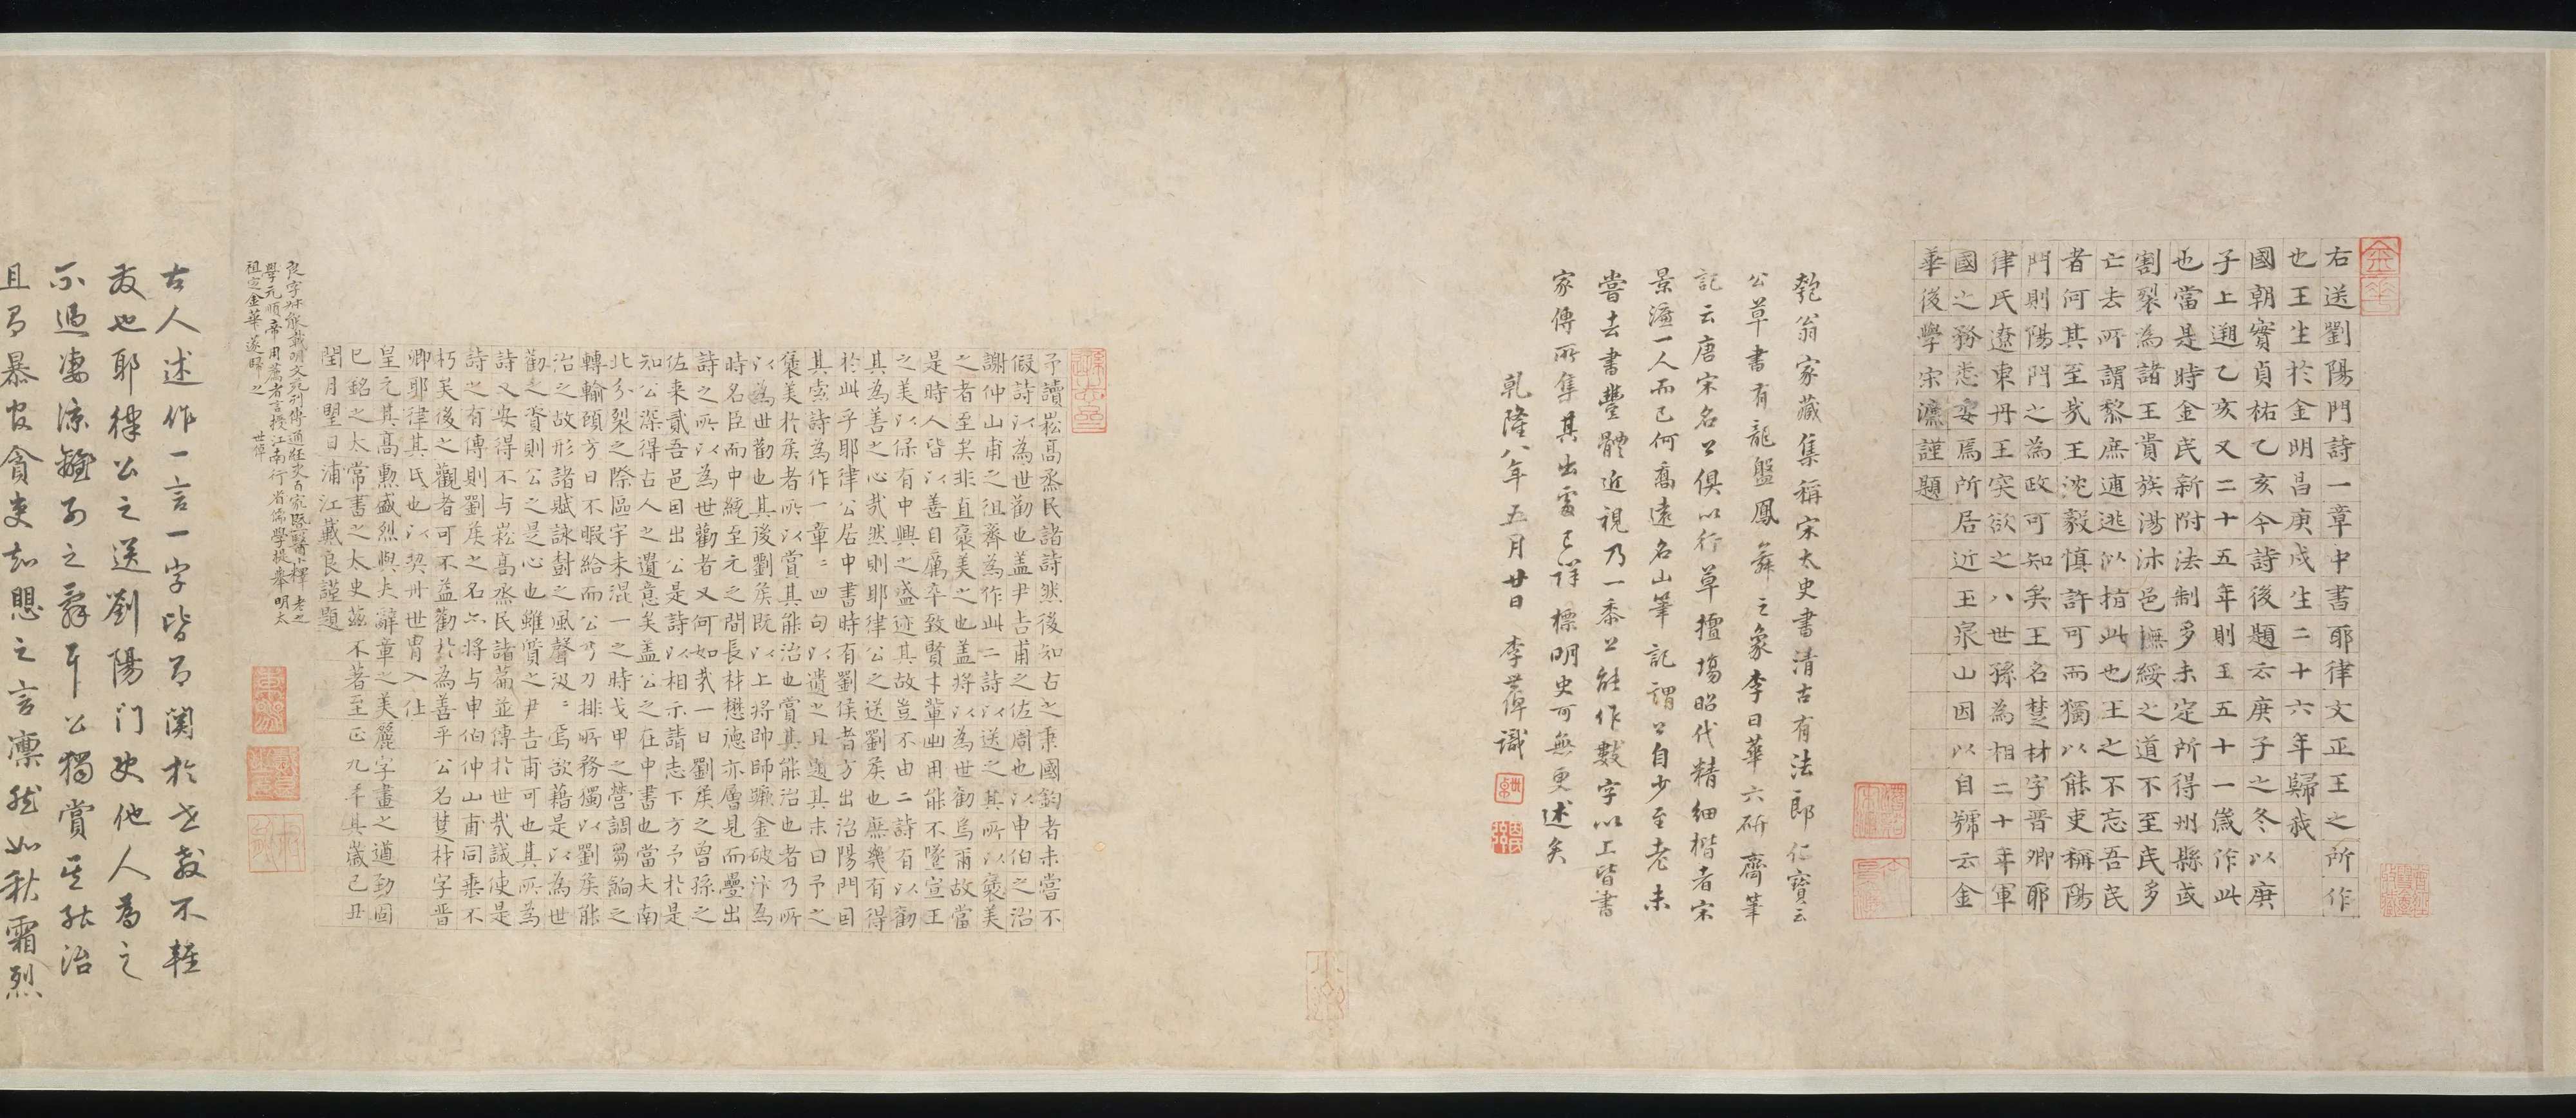 右送劉陽門詩一章中書耶律文正王之所作
也王生於金明昌庚戌生二十六年歸我
國朝實貞祐乙亥今詩後題云庚子之冬以庚
子上遡乙亥又二十五年則王五十一歲作此
也當是時金民新附法制多未定所得州縣或
割裂為諸王貴族湯沐邑憮綏之道不至民多
亡去所謂黎庶逋逃以指此也王之不忘吾民
者何其至哉王沈毅慎許可而獨以能吏稱陽
門則陽門之為政可知矣王名楚材字晉卿耶
律氏遼東丹王突欲之八世孫為相二十年軍
國之務悉安焉所居近玉泉山因以自號云金
華後學宋濂謹題
匏翁家藏集稱宋太史書清古有法郎仁寶云
公草書有龍盤鳳舞之象李日華六研齋筆
記云唐宋名公俱以行草擅塲昭代精細楷者宋
景濂一人而已何喬遠名山筆記謂公自少至老未
嘗去書豐體近視乃一黍上能作數字以上皆書
家傳所集其出處已詳標明史可無更述矣
乾隆八年五月廿日 李世倬識
予讀崧高烝民諸詩然後知古之秉國鈞者未嘗不
假詩以為世勸也盖尹吉甫之佐周也以申伯之沿
謝仲山甫之徂齊為作此二詩以送之其所以褒美
之者至矣非直褒美之也盖將以為世勸焉爾故當
是時人皆以善自厲卒致賢才軰出用能不墜宣王
之美以保有中興之盛迹其故豈不由二詩有以勸
其為善之心哉然則耶律公之送劉矦也庶幾有得
於此乎耶律公居中書時有劉侯者方出治陽門因
其索詩為作一章二四句以遺之且題其末曰予之
褒美於矦者所以賞其能治也賞其能治也者乃所
以為世勸也其後劉矦既以上將帥師驅金破汴為
時名臣而中統至元之間長材懋德亦層見而疊出
詩之所以為世勸者又何如哉一日劉矦之曾孫之
佐来貳吾邑囙出公是詩以相示請志下方予於是
知公深得古人之遺意矣盖公之在中書也當大南
北分裂之際區宇未混一之時戈甲之營調芻餉之
轉輸頭方日不暇給而公乃力排所務獨以劉矦能
治之故形諸賦詠尌之風聲汲二焉欲藉是以為世
勸之資則公之是心也雖質之尹吉甫可也其所為
詩又安得不与崧高烝民諸萹並傳於世哉誠使是
詩之有傳則劉矦之名亦將与申伯仲山甫同垂不
朽矣後之觀者可不益勸於為善乎公名楚材字晉
卿耶律其氏也以契丹世胄入仕
皇元其高勳盛烈與夫辭章之美麗字畫之遒勁固
已銘之太常書之太史茲不著至正九年其歲己丑
閏月朢日浦江戴良謹題
良字叔能載明文苑列傳通經史百家曁醫卜釋老之
學元順帝用薦者言授江南行省儒學提舉明太
祖定金華遂歸之 世倬
古人述作一言一字皆有関於世教不輕
发也耶律公之送劉陽门使他人為之
不過凄涼錢别之辭耳公獨賞其能治
且有暴官貪吏知愳之言凛然如秋霜烈